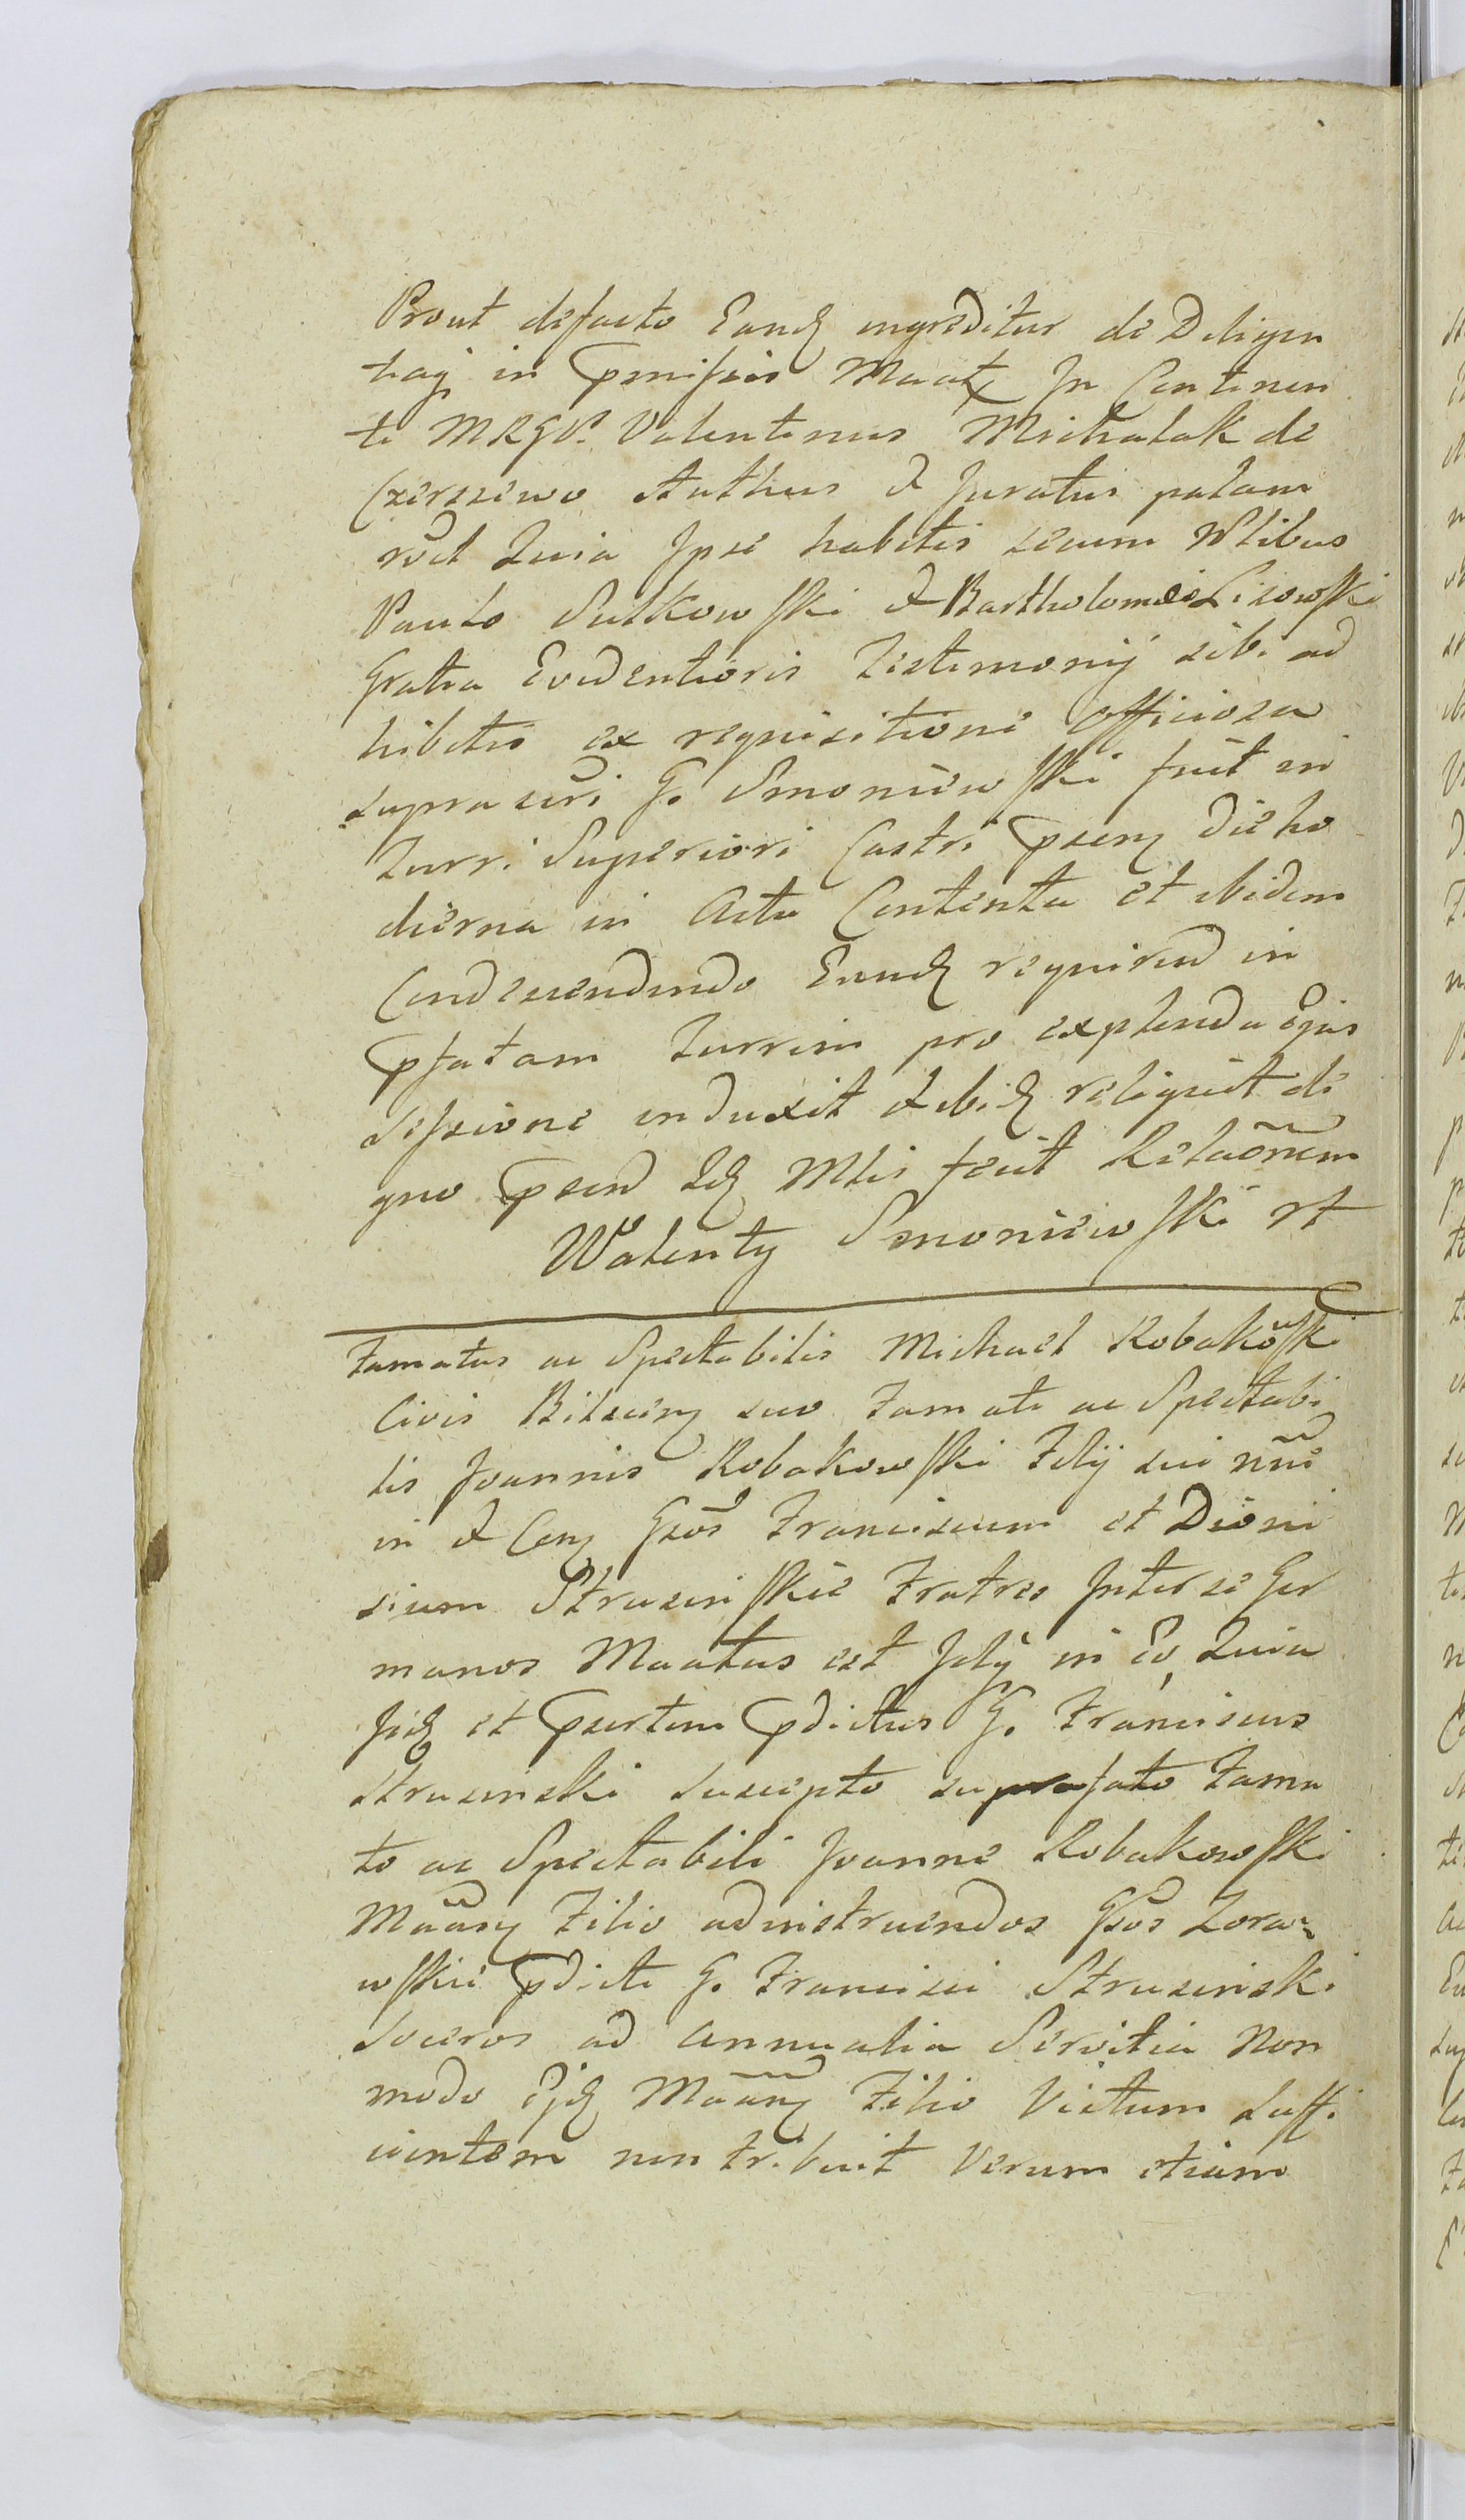 Prout defacto Eand ingreditur de Diligen
tiaq in pmissis Maat In Continen
ti MRGP. Valentinus Michalak de
Czerszewo Authus & Juratus palam
rcdt Quia Ipse habitis secum Nlibus
Paulo Sulkowski & Bartholomeo Lisowski
Gratia Evidentioris Testimonij sibi ad
hibitis ex requisitione officiosa
suprascri G. Smoniewski fuit in
Turri Superiori Castri psenz die ho
dierna in Actu Contenta et ibidem
Condescendendo Eund requirend in
pfatam Turrim pro explenda Ejus
Sessione induxit & ibid reliquit de
quo psens Id Mlis fecit Relaonem
Walenty Smoniewski
Famatus ac Spectabilis Michael Robakowski
Civis Bilscens suo Famati ac Spectabi
lis Joannis Robakowski Filij sui nni
in & Con Gsos Franciscum et Dioni
sium Strusinskie Fratres Inter se Ger
manos Maatus est Jdq in eo, Quia
Jid et psertim pdictus G. Franciscus
Strusinski suscepto suprafato Fama
to ac Spectabili Joanne Robakowski
Maanz Filio adinstruendos Gsos Zora
wskie pdicti G. Francisci Strusinski
Soceros ad annualia Servitia Non
modo Ejd Maanz Filio Victum suffi
cientem non tribuit Verum etiam